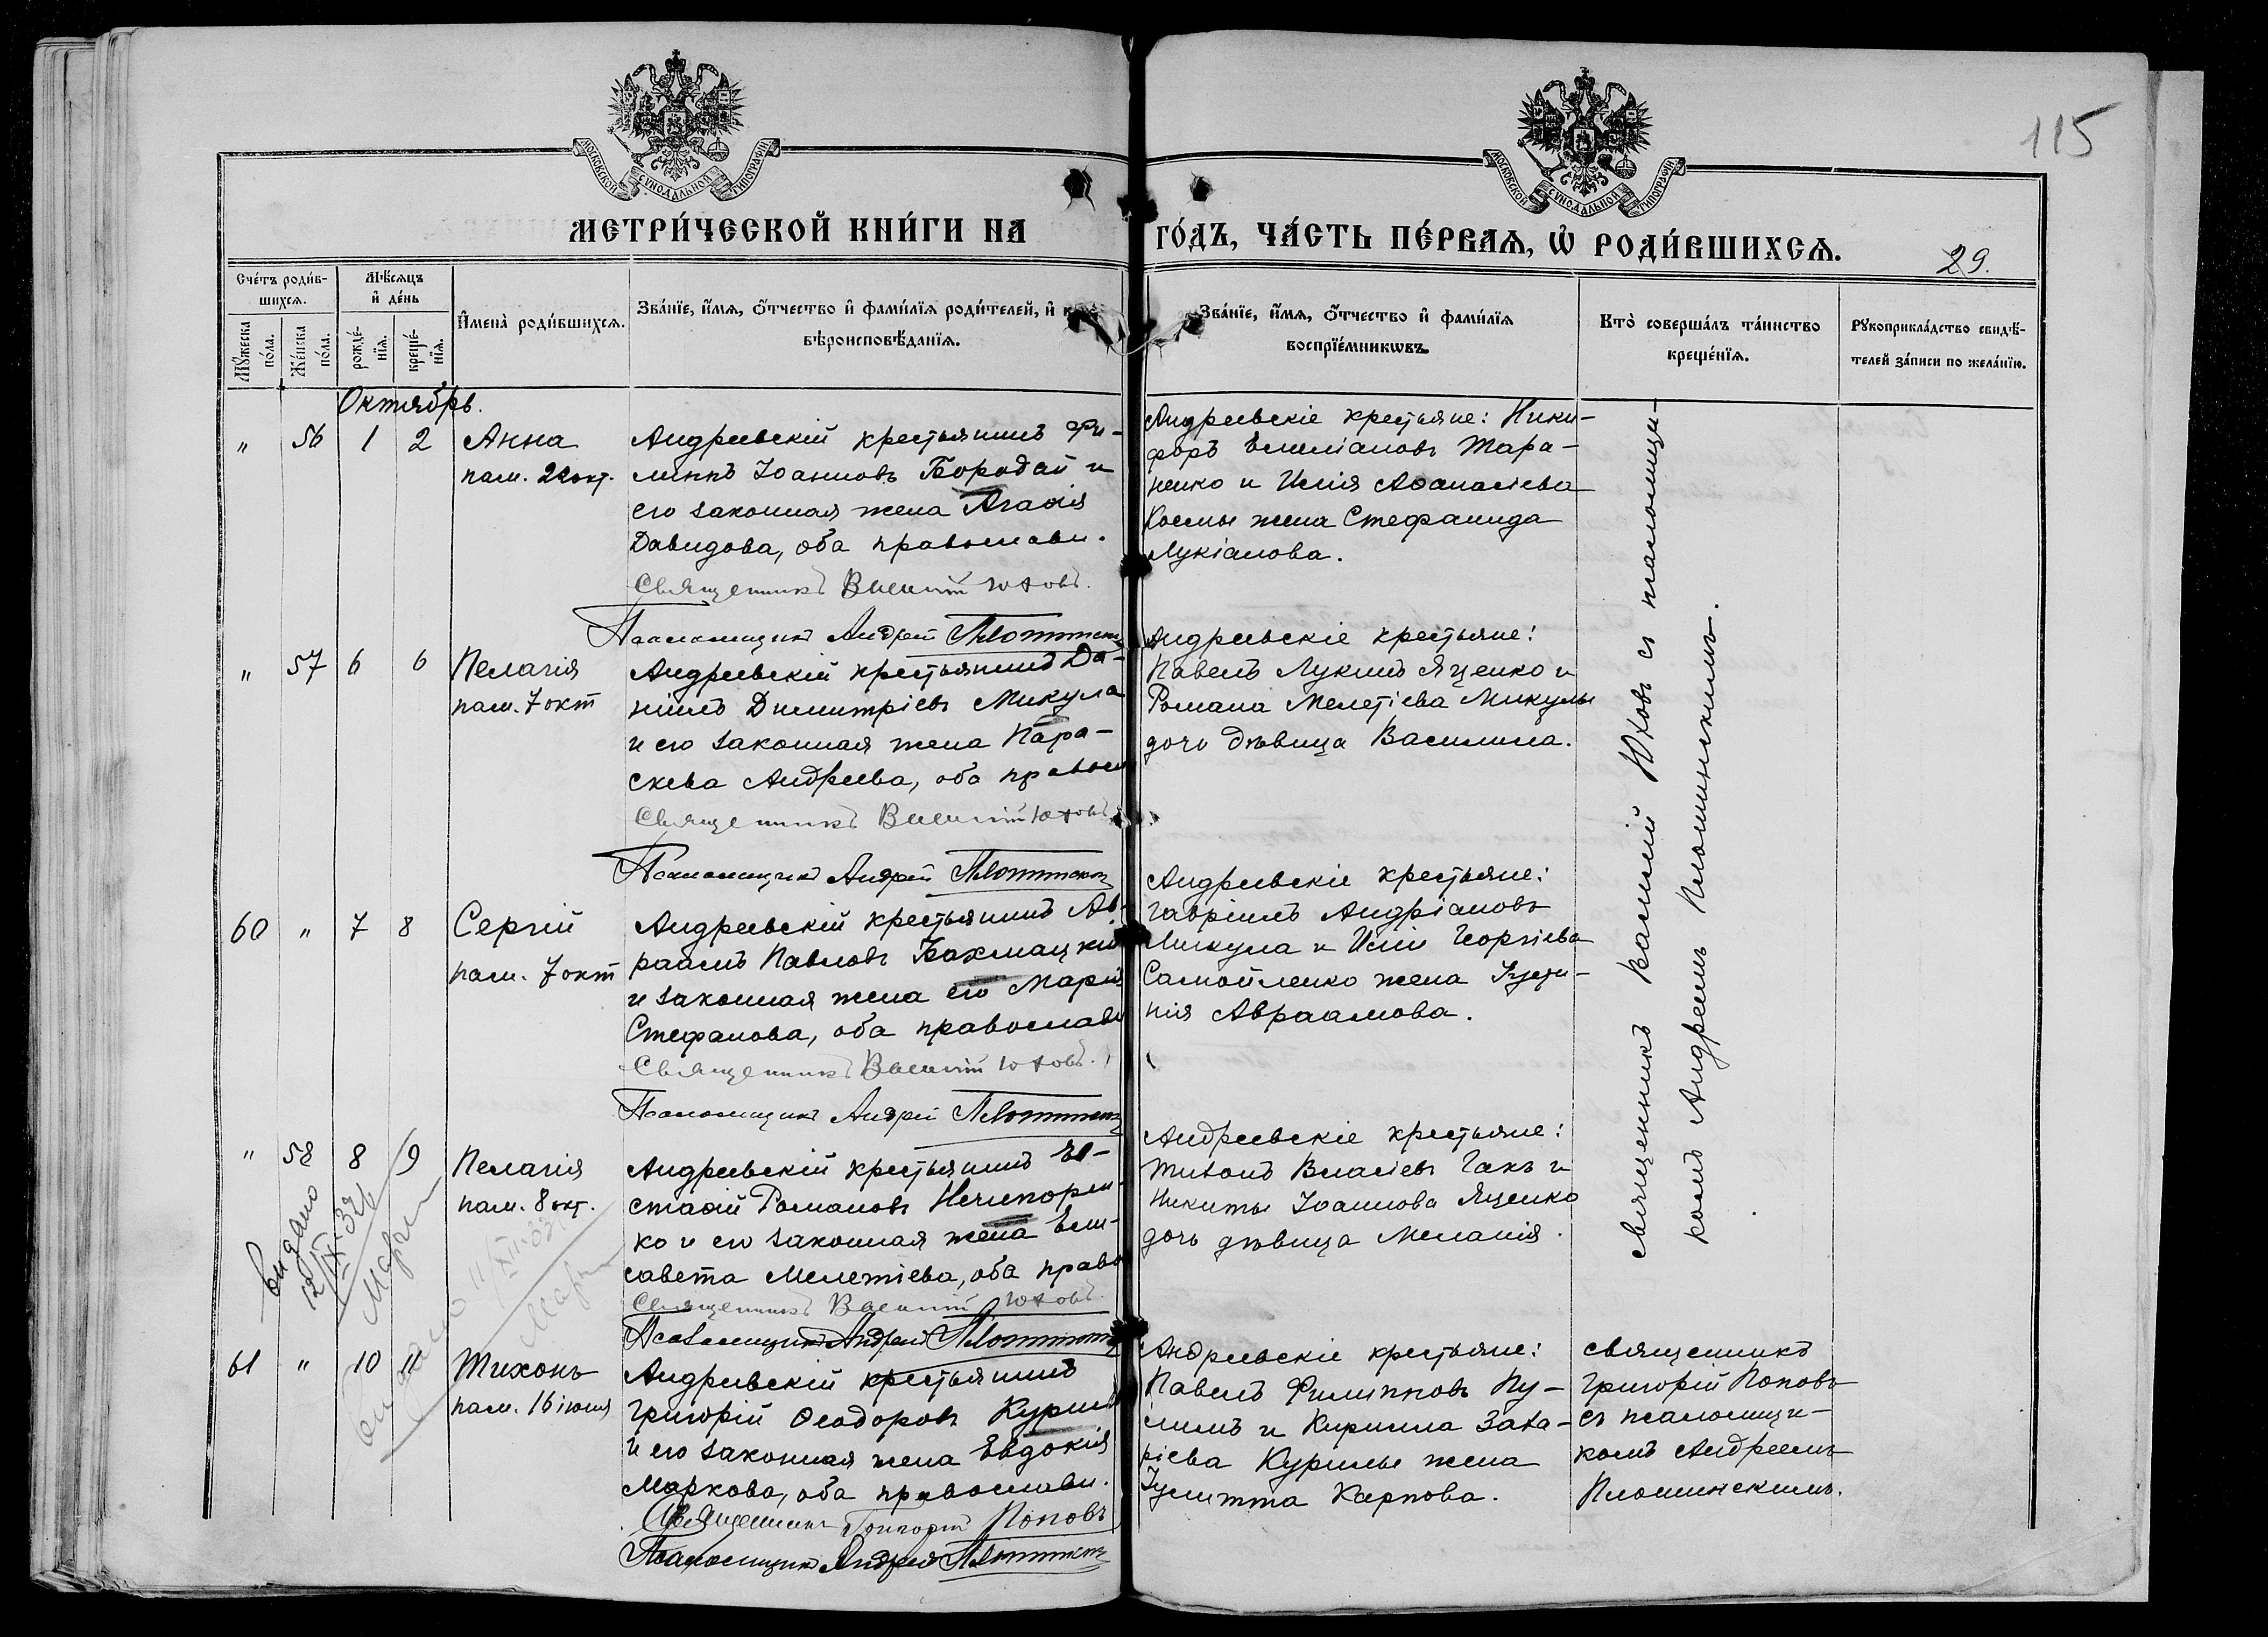 115
МОСКОВСКОЙ СУНОДАЛЬНОЙ ТИПОГРАФІИ
МОСКОВСКОЙ СУНОДАЛЬНОЙ ТИПОГРАФІИ
МЕТРИ́ЧЕСКОЙ КНИ́ГИ НА
ГО́ДЪ, ЧА́СТЬ ПЕ́РВАѦ, Ѡ҆ РОДИ́ВШИХСѦ.
29.
Сче́тъ роди́в-
шихсѧ.
Мѣ́сѧцъ
и҆ де́нь
Мꙋ́жеска
по́ла.
Же́нска
по́ла.
рожде́-
нїѧ.
креще́-
нїѧ.
И҆мена̀ роди́вшихсѧ.
Зва́нїе, и҆́мѧ, ѻ҆́тчество и҆ фами́лїѧ роди́телей, и҆
вѣроисповѣ́данїѧ.
Зва́нїе, и҆́мѧ, ѻ҆́тчество и҆ фами́лїѧ
воспрїе́мникѡвъ.
Кто̀ соверша́лъ та́инство
креще́нїѧ.
Рꙋкоприкла́дство свидѣ́-
телей за́писи по жела́нїю.
Октябрь.
" 56 1 2 Анна
пам. 22 окт.
Андреевскій крестьянинъ Фи-
липпъ Іоанновъ Бородай и
его законная жена Агаѳія
Давидова, оба православн.
Священникъ Василій Юховъ.
Псаломщикъ Андрей Плошинскій
Андреевскіе крестьяне: Ники-
форъ Емиліановъ Тара-
ненко и Илія Аѳанасіева
Космы жена Стефанида
Лукіанова.
" 57 6 6 Пелагія
пам. 7 окт
Андреевскій крестьянинъ Да-
ніилъ Димитріевъ Микула
и его законная жена Пара-
скева Андреева, оба правосл
Священникъ Василій Юховъ
Псаломщикъ Андрей Плошинскій
Андреевскіе крестьяне:
Павелъ Лукинъ Яценко и
Романа Мелетіева Микулы
дочь дѣвица Василина.
60 " 7 8 Сергій
пам. 7 окт
Андреевскій крестьянинъ Ав-
раамъ Павловъ Бахмацкій
и законная жена его Марія
Стефанова, оба православн
Священникъ Василій Юховъ.
Псаломщикъ Андрей Плошинскій
Андреевскіе крестьяне:
Гавріилъ Андріановъ
Микула и Иліи Георгіева
Самойленко жена Іусти-
нія Авраамова.
" 58 8 9 Пелагія
пам. 8 окт.
Андреевскій крестьянинъ Ев-
стаѳій Романовъ Нечипорен-
ко и его законная жена Ели-
савета Мелетіева, оба право
Священникъ Василій Юховъ.
Псаломщикъ Андрей Плошинскій
Андреевскіе крестьяне:
Тихонъ Власіевъ Гакъ и
Никиты Іоаннова Яценко
дочь дѣвица Меланія.
видано
12/IX-32
видано 11/XII-32
61 " 10 11 Тихонъ
пам. 16 іюня
Андреевскій крестьянинъ
Григорій Ѳеодоровъ Курило
и его законная жена Евдокія
Маркова, оба православн.
Священникъ Григорій Поповъ
Псаломщикъ Андрей Плошинскій
Андреевскіе крестьяне:
Павелъ Филипповъ Ку-
лишъ и Кирилла Заха-
ріева Курилы жена
Іулитта Карпова.
Священникъ Василій Юховъ съ псаломщи-
комъ Андреемъ Плошинскимъ.
священникъ
Григорій Поповъ
съ псаломщи-
комъ Андреемъ
Плошинскимъ.